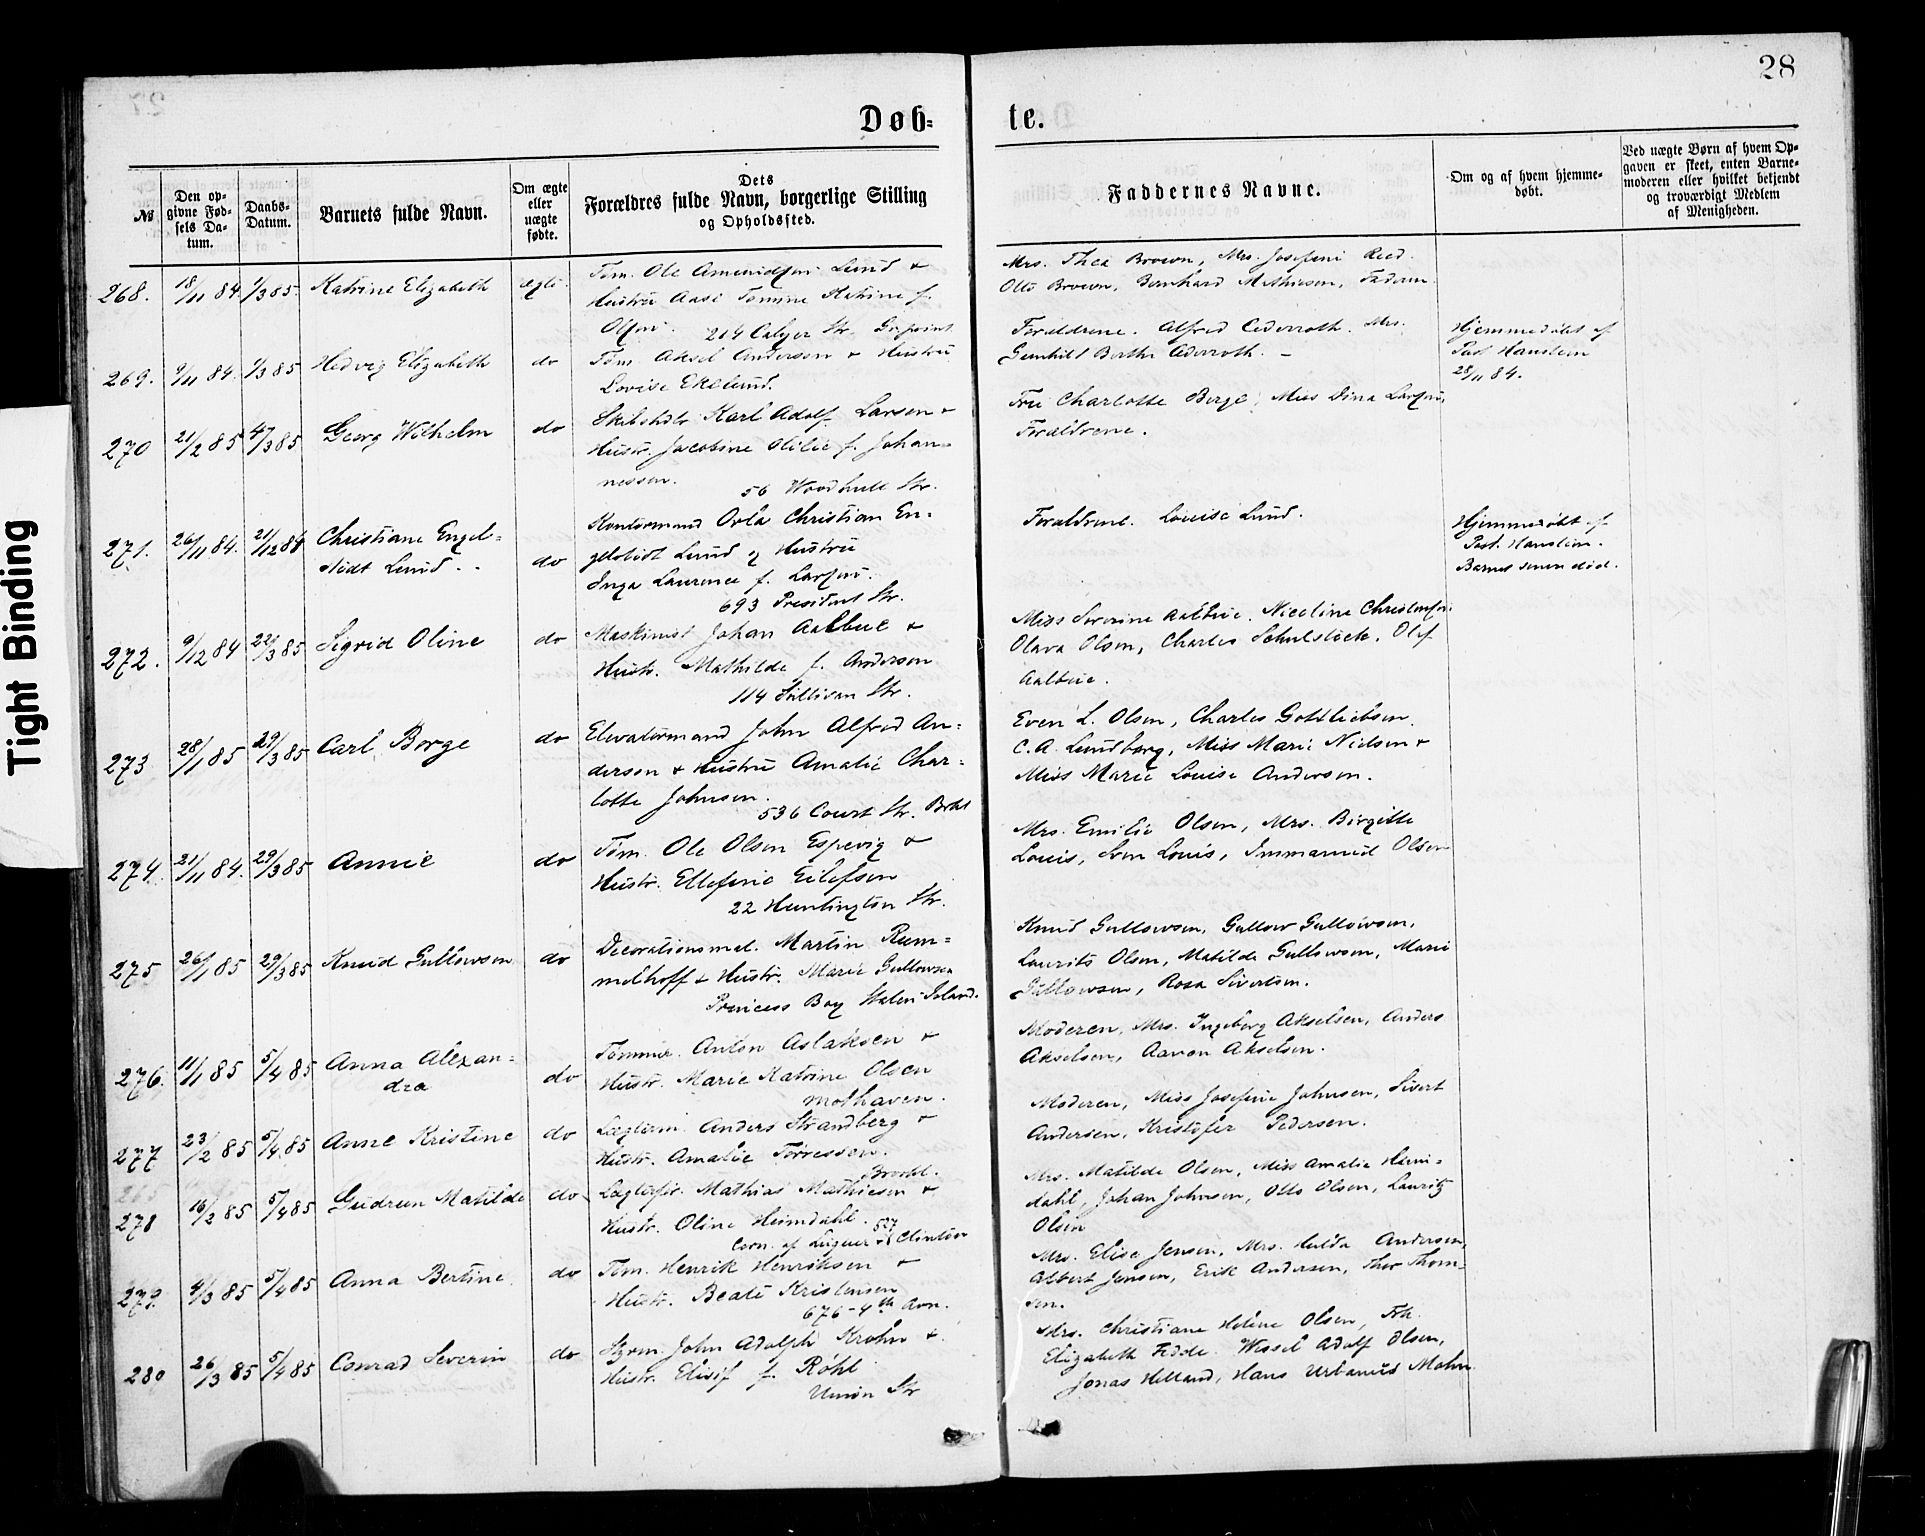 28
Døb-
te.
№
Den op-
givne Fød-
sels Da-
tum.
Daabs-
Datum.
Barnets fulde Navn.
Om ægte
eller
uægte
fødte.
Dets
Forældres fulde Navn, borgerlige Stilling
og Opholdssted.
Faddernes Navne.
Om og af hvem hjemme-
døbt.
Ved uægte Børn af hvem Op-
gaven er skeet, enten Barne-
moderen eller hvilket bekjendt
og troværdigt Medlem
af Menigheden.
268. 18/11 84. 1/3 85. Katrine Elizabeth ægte
Tøm. Ole Amundsen Lund +
Hustru Aase Tomine Katrine f.
Olsen. 214 Calyer Str. Grpoint
Mrs. Thea Brown, Mrs. Josefine Reed.
Otto Brown, Bernhard Mathiesen, Faderen.
269. 9/11 84. 1/3 85 Hedvig Elizabeth do
Tøm. Aksel Anderson + Hustru
Lovise Ekelund.
Forældrene. Alfred Cederroth. Mrs.
Gunhild Berthe Cederroth. –
Hjemmedøbt af
Past. Hanstein
28/11 84.
270 21/2 85 4/3 85 Georg Wilhelm do
Skibshdlr Karl Adolf Larsen +
Hustr. Jacobine Otilie f. Johan-
nessen.
56 Woodhull Str.
Fru Charlotte Berge, Miss Dina Larsen,
Forældrene.
271. 26/11 84. 21/12 84 Christiane Engel-
stidt Lund. do
Kontormand Orla Christian En-
gelstidt Lund og Hustru
Inga Laurence f. Larsen.
693 President Str.
Forældrene. Louise Lund.
Hjemmedøbt af
Past. Hanstein.
Barnet senere död.
272. 9/12 84 22/3 85 Sigrid Oline do
Maskinist Johan Aalbue +
Hustr. Mathilde f. Anderson
114 Sullivan Str.
Miss Severine Aalbue. Nicoline Christensen.
Olava Olsen, Charles Schulstock. Olef
Aalbue.
273 28/1 85 29/3 85 Carl Borge do
Elevatormand John Alfred An-
derson + Hustru Amalie Char-
lotte Johnsen.
536 Court Str. Brkl
Even L. Olsen, Charles Gottliebsen.
C.A. Lundborg, Miss Marie Nielsen +
Miss Marie Louise Anderson.
274. 21/11 84. 29/3 85 Annie do
Tøm. Ole Olsen Espevig +
Hustr. Ellefine Eilefsen
22 Huntington Str.
Mrs. Emilie Olsen, Mrs. Birgitte
Louis, Sven Louis, Immanuel Olsen
275 26/1 85 29/3 85 Knud Gullowsen do
Decorationsmal. Martin Rum-
melhoff + Hustr. Marie Gullowsen
Princess Bay Staten Island.
Knud Gullowsen, Gullow Gullowsen,
Laurits Olsen, Matilde Gullowsen, Marie
Gullowsen, Rosa Sivertsen.
276. 11/1 85 5/4 85 Anna Alexan-
dra do
Tømmer. Anton Aslaksen +
Hustr. Marie Katrine Olsen
Mothaven.
Moderen, Mrs. Ingeborg Akselsen, Anders
Akselsen, Aanon Akselsen.
277 23/2 85 5/4 85 Anne Kristine do
Lægterm. Anders Strandberg +
Hustr. Amalie Tørressen.
Brookl.
Moderen, Miss Josefine Johnsen, Sivert
Andersen, Kristofer Pedersen.
278 16/2 85 5/4 85 Gudrun Matilde do
Lægterfør. Mathias Mathiesen +
Hustr. Oline Heimdahl.
Corn. of Luquer + 527 Clinton
Mrs. Matilde Olsen, Miss Amalie Heim-
dahl, Johan Johnsen, Otto Olsen, Lauritz
Olsen
279. 4/3 85 5/4 85 Anna Bertine. do
Tøm. Henrik Henriksen +
Hustr. Beate Kristensen
676 - 4th Avn.
Mrs. Elise Jensen, Mrs. Hulda Andersen,
Albert Jensen, Erik Andersen, Thor Thom-
sen.
280 26/3 85 5/4 85 Conrad Severin do
Styrm. John Adolph Krohn +
Hustr. Elisif f. Röhl
Union Str
Mrs. Christiane Helene Olsen, Frk.
Elizabeth Fedde. Wessel Adolf Olsen,
Jonas Helland, Hans Urbanus Mohn.
Tight Binding